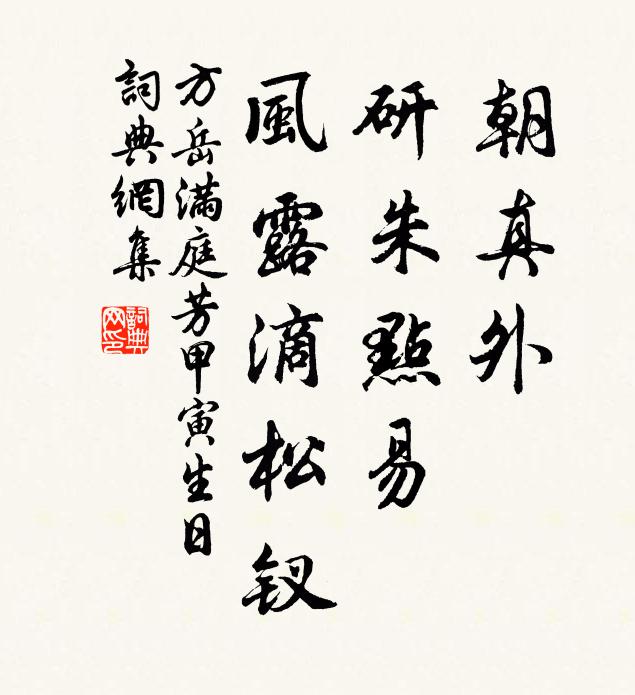 朝真外
研朱點易
風露滴松钗
方岳滿庭芳甲寅生日
詞典網集
詞典网印